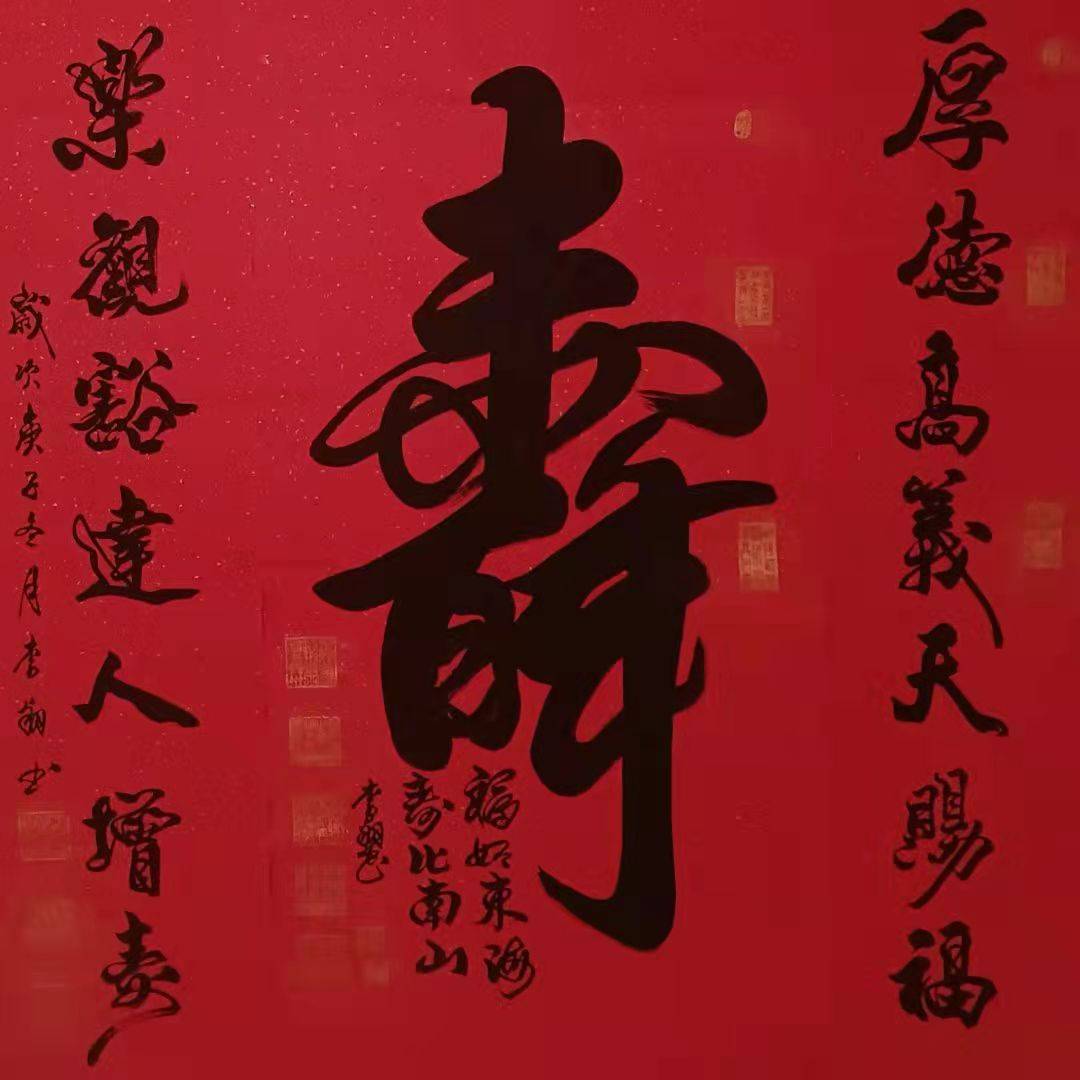 厚德高義天賜福
壽
福如東海
壽比南山
李
樂觀豁達人增壽
歲次庚子冬月李書